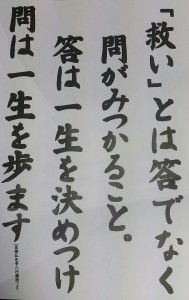 「救い」とは答でなく
問がみつかること。
答は一生を決めつけ
問は一生を歩ます